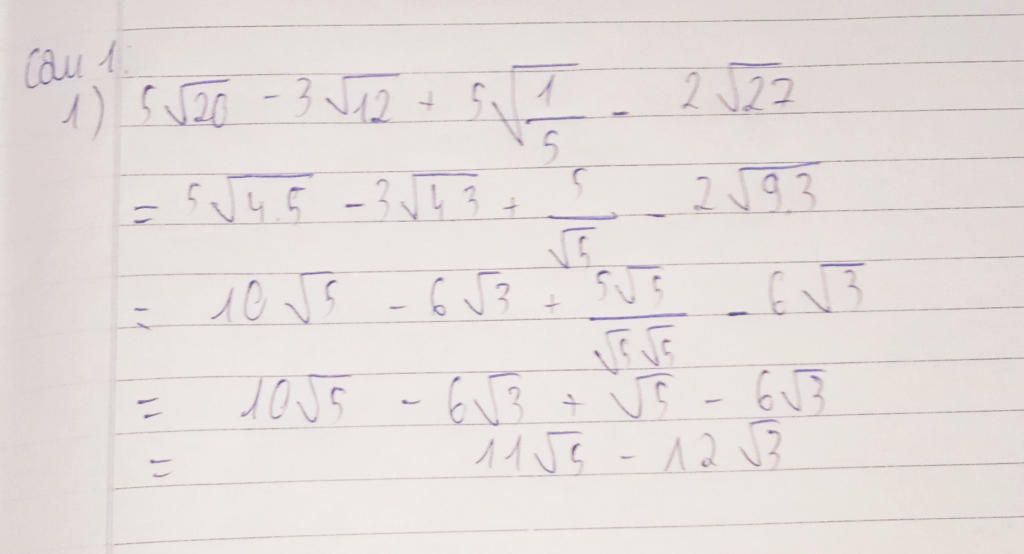 Câu 1:
1) 5√20 - 3√12 + 5√(1/5) - 2√27
= 5√4.5 - 3√4.3 + 5/√5 - 2√9.3
= 10√5 - 6√3 + 5√5/√5√5 - 6√3
= 10√5 - 6√3 + √5 - 6√3
= 11√5 - 12√3